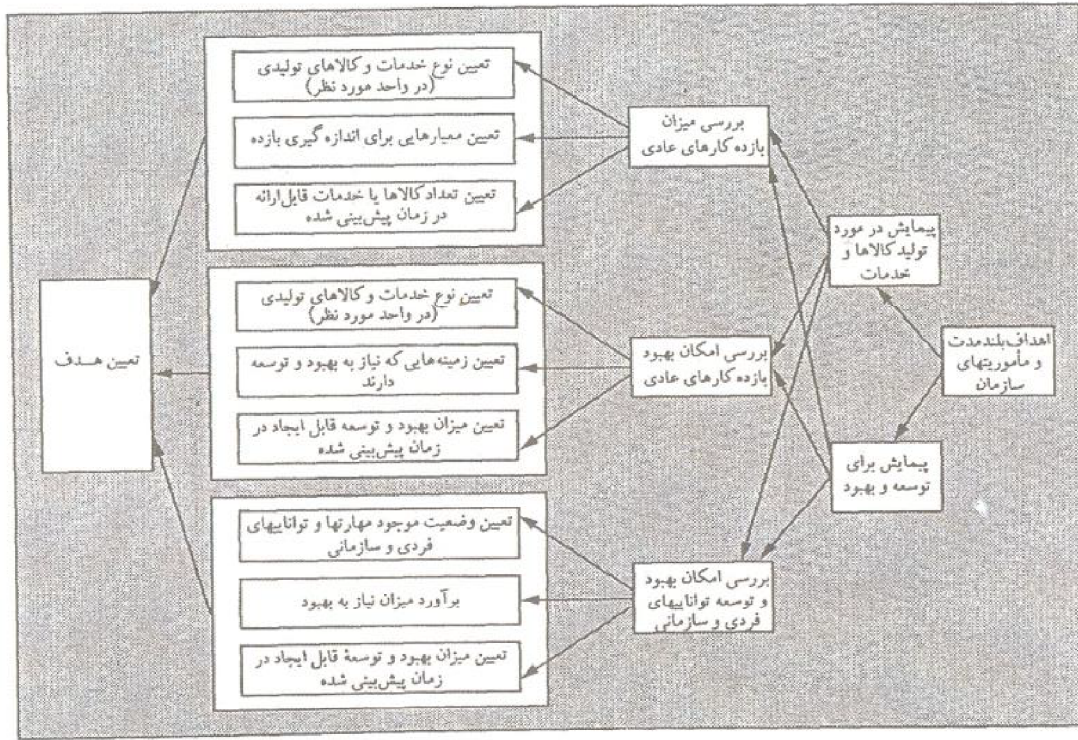 اهداف بلندمدت
و مأموریتهای
سازمان
پیمایش در مورد
تولید کالاها و
خدمات
پیمایش برای
توسعه و بهبود
بررسی میزان
بازده کارهای عادی
بررسی امکان بهبود
بازده کارهای عادی
بررسی امکان بهبود
و توسعه تواناییهای
فردی و سازمانی
تعیین نوع خدمات و کالاهای تولیدی
(در واحد مورد نظر)
تعیین معیارهایی برای اندازه گیری بازده
تعیین تعداد کالاها یا خدمات قابل ارائه
در زمان پیش‌بینی شده
تعیین نوع خدمات و کالاهای تولیدی
(در واحد مورد نظر)
تعیین زمینه‌هایی که نیاز به بهبود و توسعه
دارند
تعیین میزان بهبود و توسعه قابل ایجاد در
زمان پیش‌بینی شده
تعیین وضعیت موجود مهارتها و تواناییهای
فردی و سازمانی
برآورد میزان نیاز به بهبود
تعیین میزان بهبود و توسعهٔ قابل ایجاد در
زمان پیش‌بینی شده
تعیین هدف